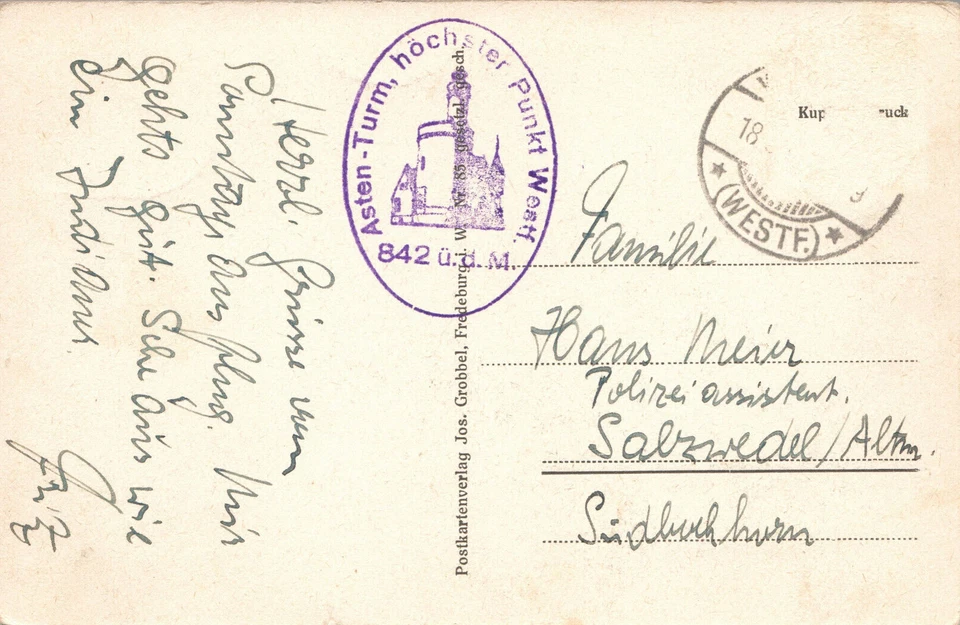 Herzl. Grüsse vom
Sonntags Ausflug. Mir
gehts gut. Sehe aus wie
ein Indianer.
Fritz
Asten-Turm, höchster Punkt Westf.
842 ü. d. M.
Postkartenverlag Jos. Grobbel, Fredeburg i. W. Nr. 85 gesetzl. gesch.
Kup ruck
18
(WESTF.)
Familie
Hans Meier
Polizeiassistent.
Salzwedel/Altm.
Südbockhorn